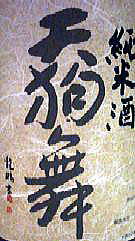 純米酒
天狗舞